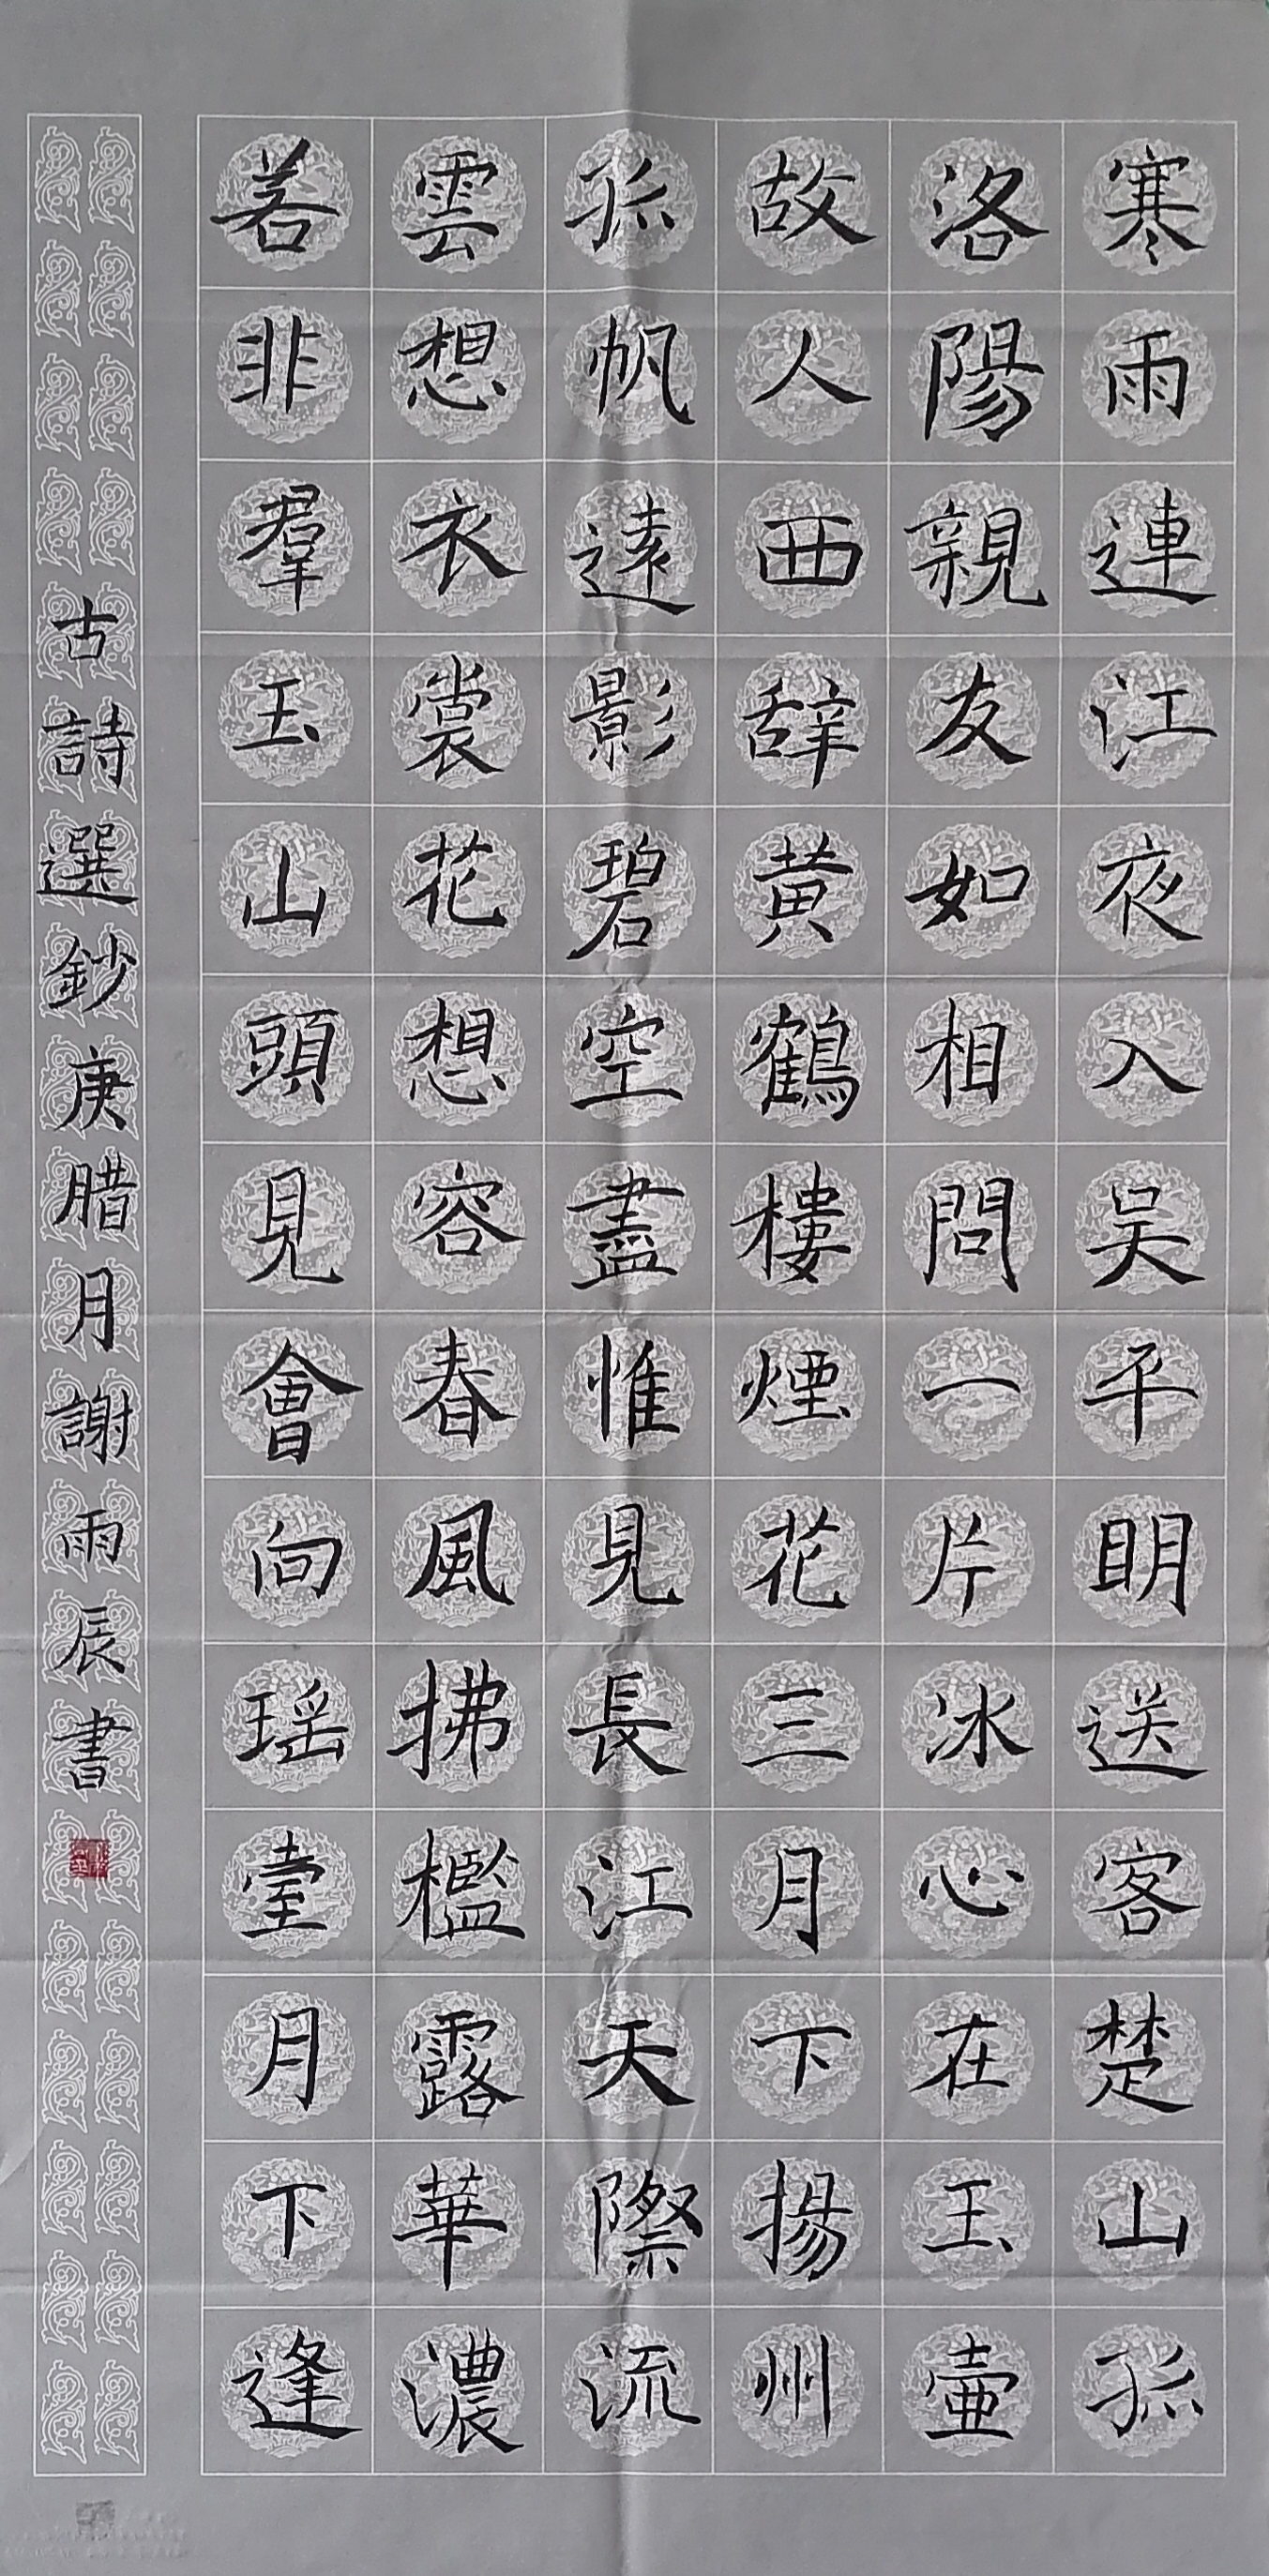 寒雨連江夜入吴平明送客楚山孤
洛陽親友如相問一片冰心在玉壷
故人西辞黄鶴樓煙花三月下揚州
孤帆遠影碧空盡惟見長江天際流
雲想衣裳花想容春風拂檻露華濃
若非羣玉山頭見會向瑶臺月下逢
古詩選鈔庚腊月謝雨辰書